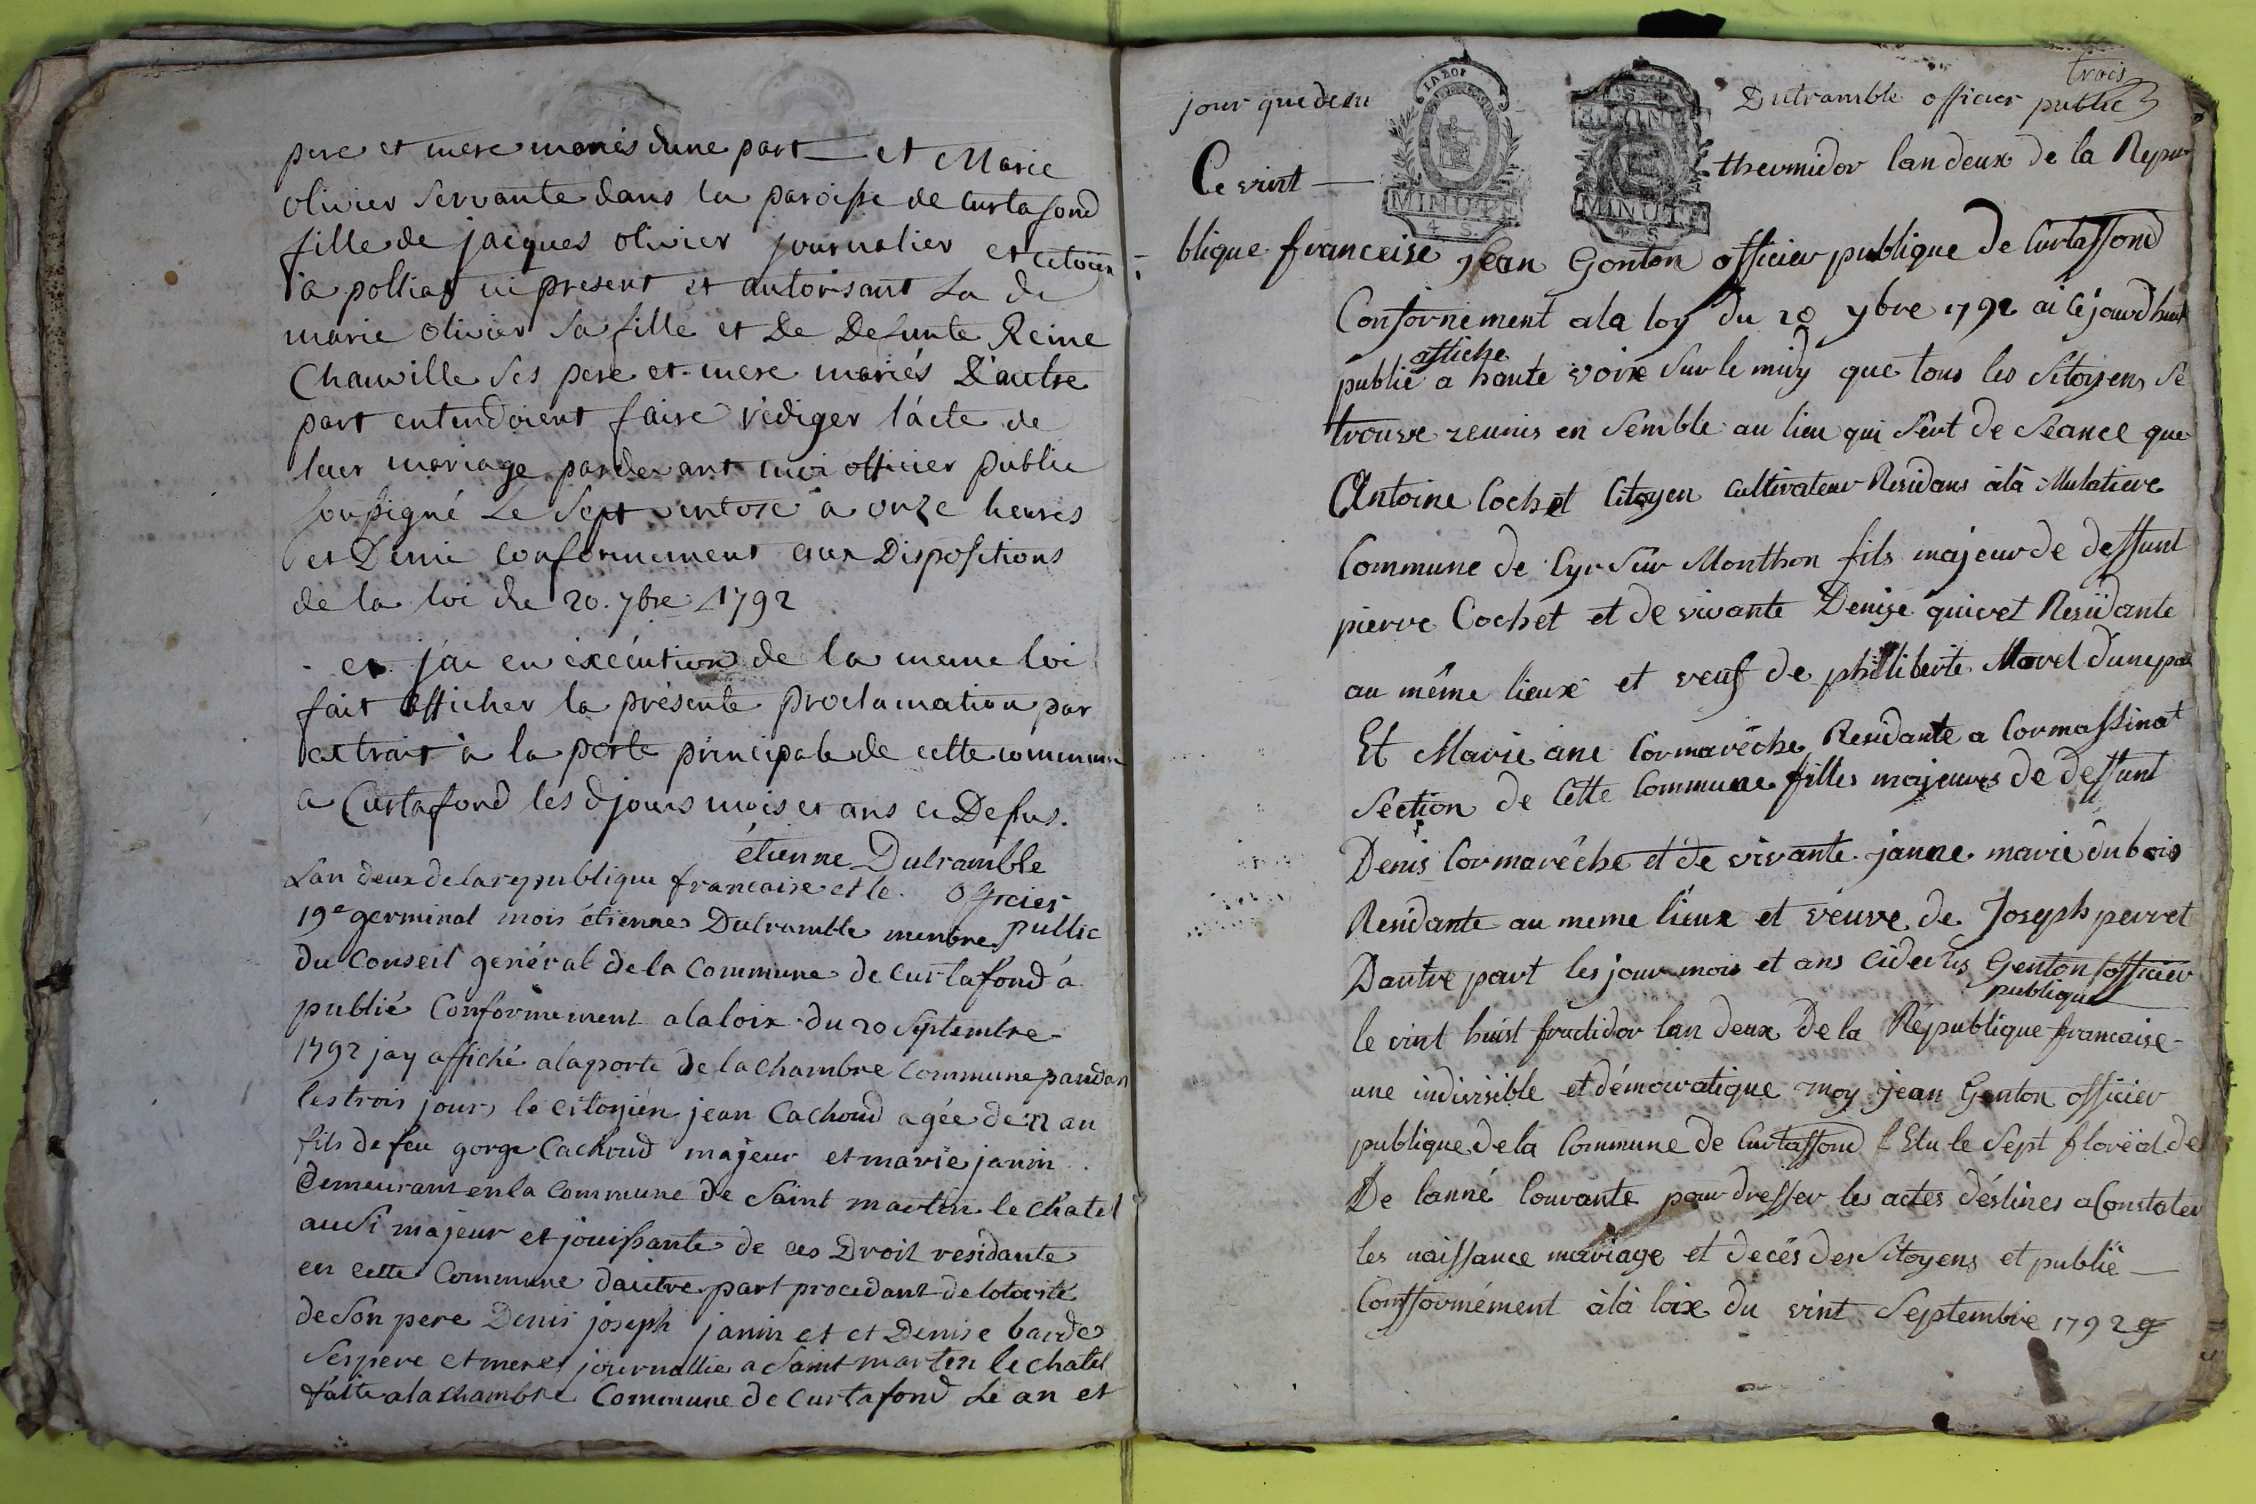 pere et mere mariés dune part — et Marie
olivier servante dans la paroisse de curtafond
fille de jacques olivier journalier et citoien
a polliat ici present et autorisant La de
marie olivier sa fille et De Defunte Reine
Chanville ses pere et mere mariés D'autre
part entendoient faire rédiger l'acte de
leur mariage pardevant moi officier public
soussigné Le sept ventose a onze heures
et Demie conformement aux Dispositions
de la loi du 20. 7bre 1792
et j'ai en exécution de la meme loi
fait afficher la présente proclamation par
extrait à la porte principale de cette commune
a Curtafond les djours mois et ans ci Dessus.
étienne Dutramble
Officier
public
Lan deux de la republique francaise et le
19e germinal mois étienne Dutramble menbre
du Conseil general de la Commune de curtafond a
publié Conformement a la loix du 20 Septembre
1792 jay affiché a la porte de la chambre Commune pandan
les trois jours le citoyien jean Cachoud agée de 22 an
fils de feu gorge Cachoud majeur et marie janin
Demeurant en la commune de Saint martin le chatel
ausi majeur et jouissante de ces Droit residante
en cette Commune dautre part procedant de lotorité
de son pere Denis joseph janin et et Denise barde
ses pere et mere journallie a Saint martin le chatel
faite a la chambre Commune de curtafond Le an et
trois
jour que desu Dutramble officier public
LA LOI
MINUTE
4 S.
MINUTE
4 S.
Ce vint — thermidor lan deux de la Repu
blique francaise jean Gonton officier publique de Curtaffond
Conformement a la loy du 20 7bre 1792 ai cejourdhuit
affiche
publié a haute voixe sur le midy que tous les sitoyens se
trouve reunis en semble au lieu qui sert de séance que
Antoine Cochet Citoyen cultivateur Residans à là Mulatiere
Commune de Cyr sur Monthon fils majeur de deffunt
pierre Cochet et de vivante Denise quivet Residante
au même lieux et veuf de philiberte Morel dune par
Et Marie ane Cormarêche Residante a Cormassinat
Section de Cette Commune filles majeures de deffunt
Denis Cormarêche et de vivante janne marie dubois
Residante au meme lieux et véuve de Joseph perret
Dautre part les jour mois et ans cidesus Genton officier
publique
le vint huit fructidor lan deux de la République francaise
une indivisible et démocratique moy jean Genton officier
publique de la Commune de Curtaffond Elu le sept floréal de
De lanné Courante pour dresser les actes déstines a Constater
les naissance mariage et decés des Sitoyens et publié —
Confformément àlà loix du vint Septembre 1792